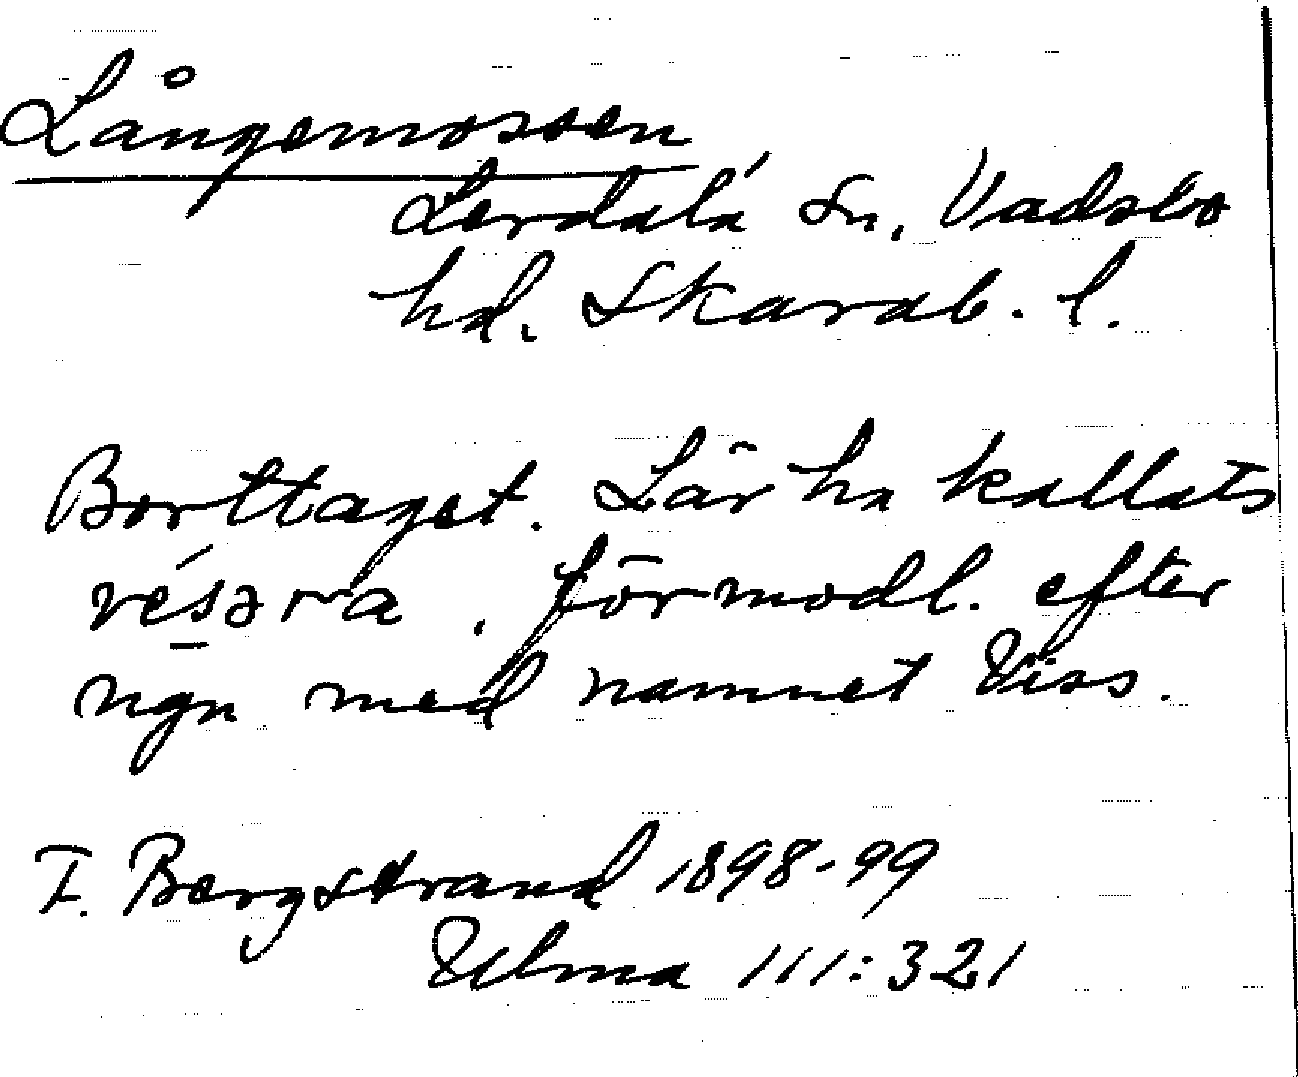 Långemossen
Lerdala sn, Vadsbo
hd. Skarab. l.
Borttaget. Lär ha kallats
vésəra, förmodl. efter
ngn med namnet Viss.
F. Bergstrand 1898-99
Ulma 111:321